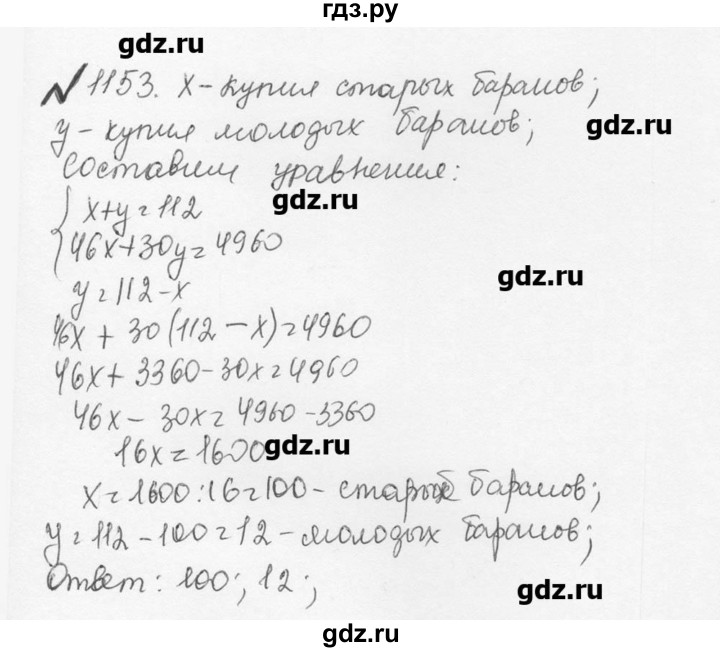 гдз.ру
gdz.ru
№1153. х-купил старых баранов;
у-купил молодых баранов;
gdz.ru
Составим уравнения:
gdz.ru
{ х+у=112
46х+30у=4960
gdz.ru
у=112-х
46х + 30(112-х)=4960
46х+3360-30х=4960
46х-30х=4960-3360
16х=1600
gdz.ru
х=1600:16=100-старых баранов;
у=112-100=12-молодых баранов;
Ответ: 100; 12;
gdz.ru
gdz.ru